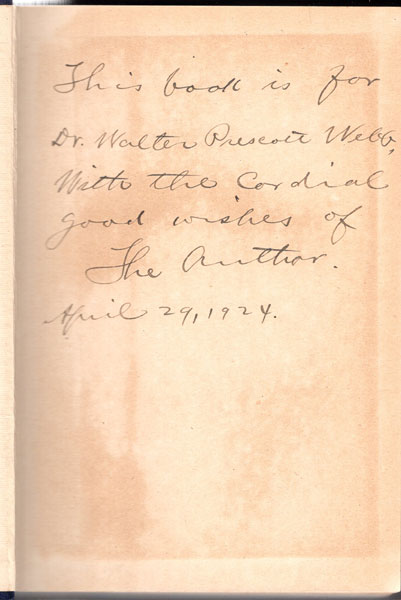 This book is for
Dr. Walter Prescott Webb,
With the Cordial
good wishes of
The Author.
April 29, 1924.